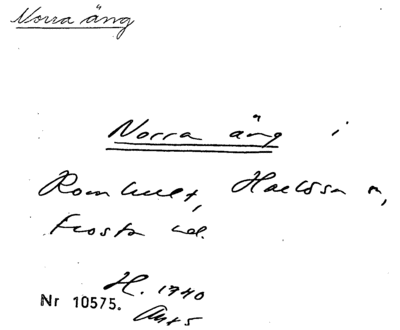 Norra äng
Norra äng i
Romhult, Harlösa sn,
Frosta hd.
H. 1940
Nr 10575.